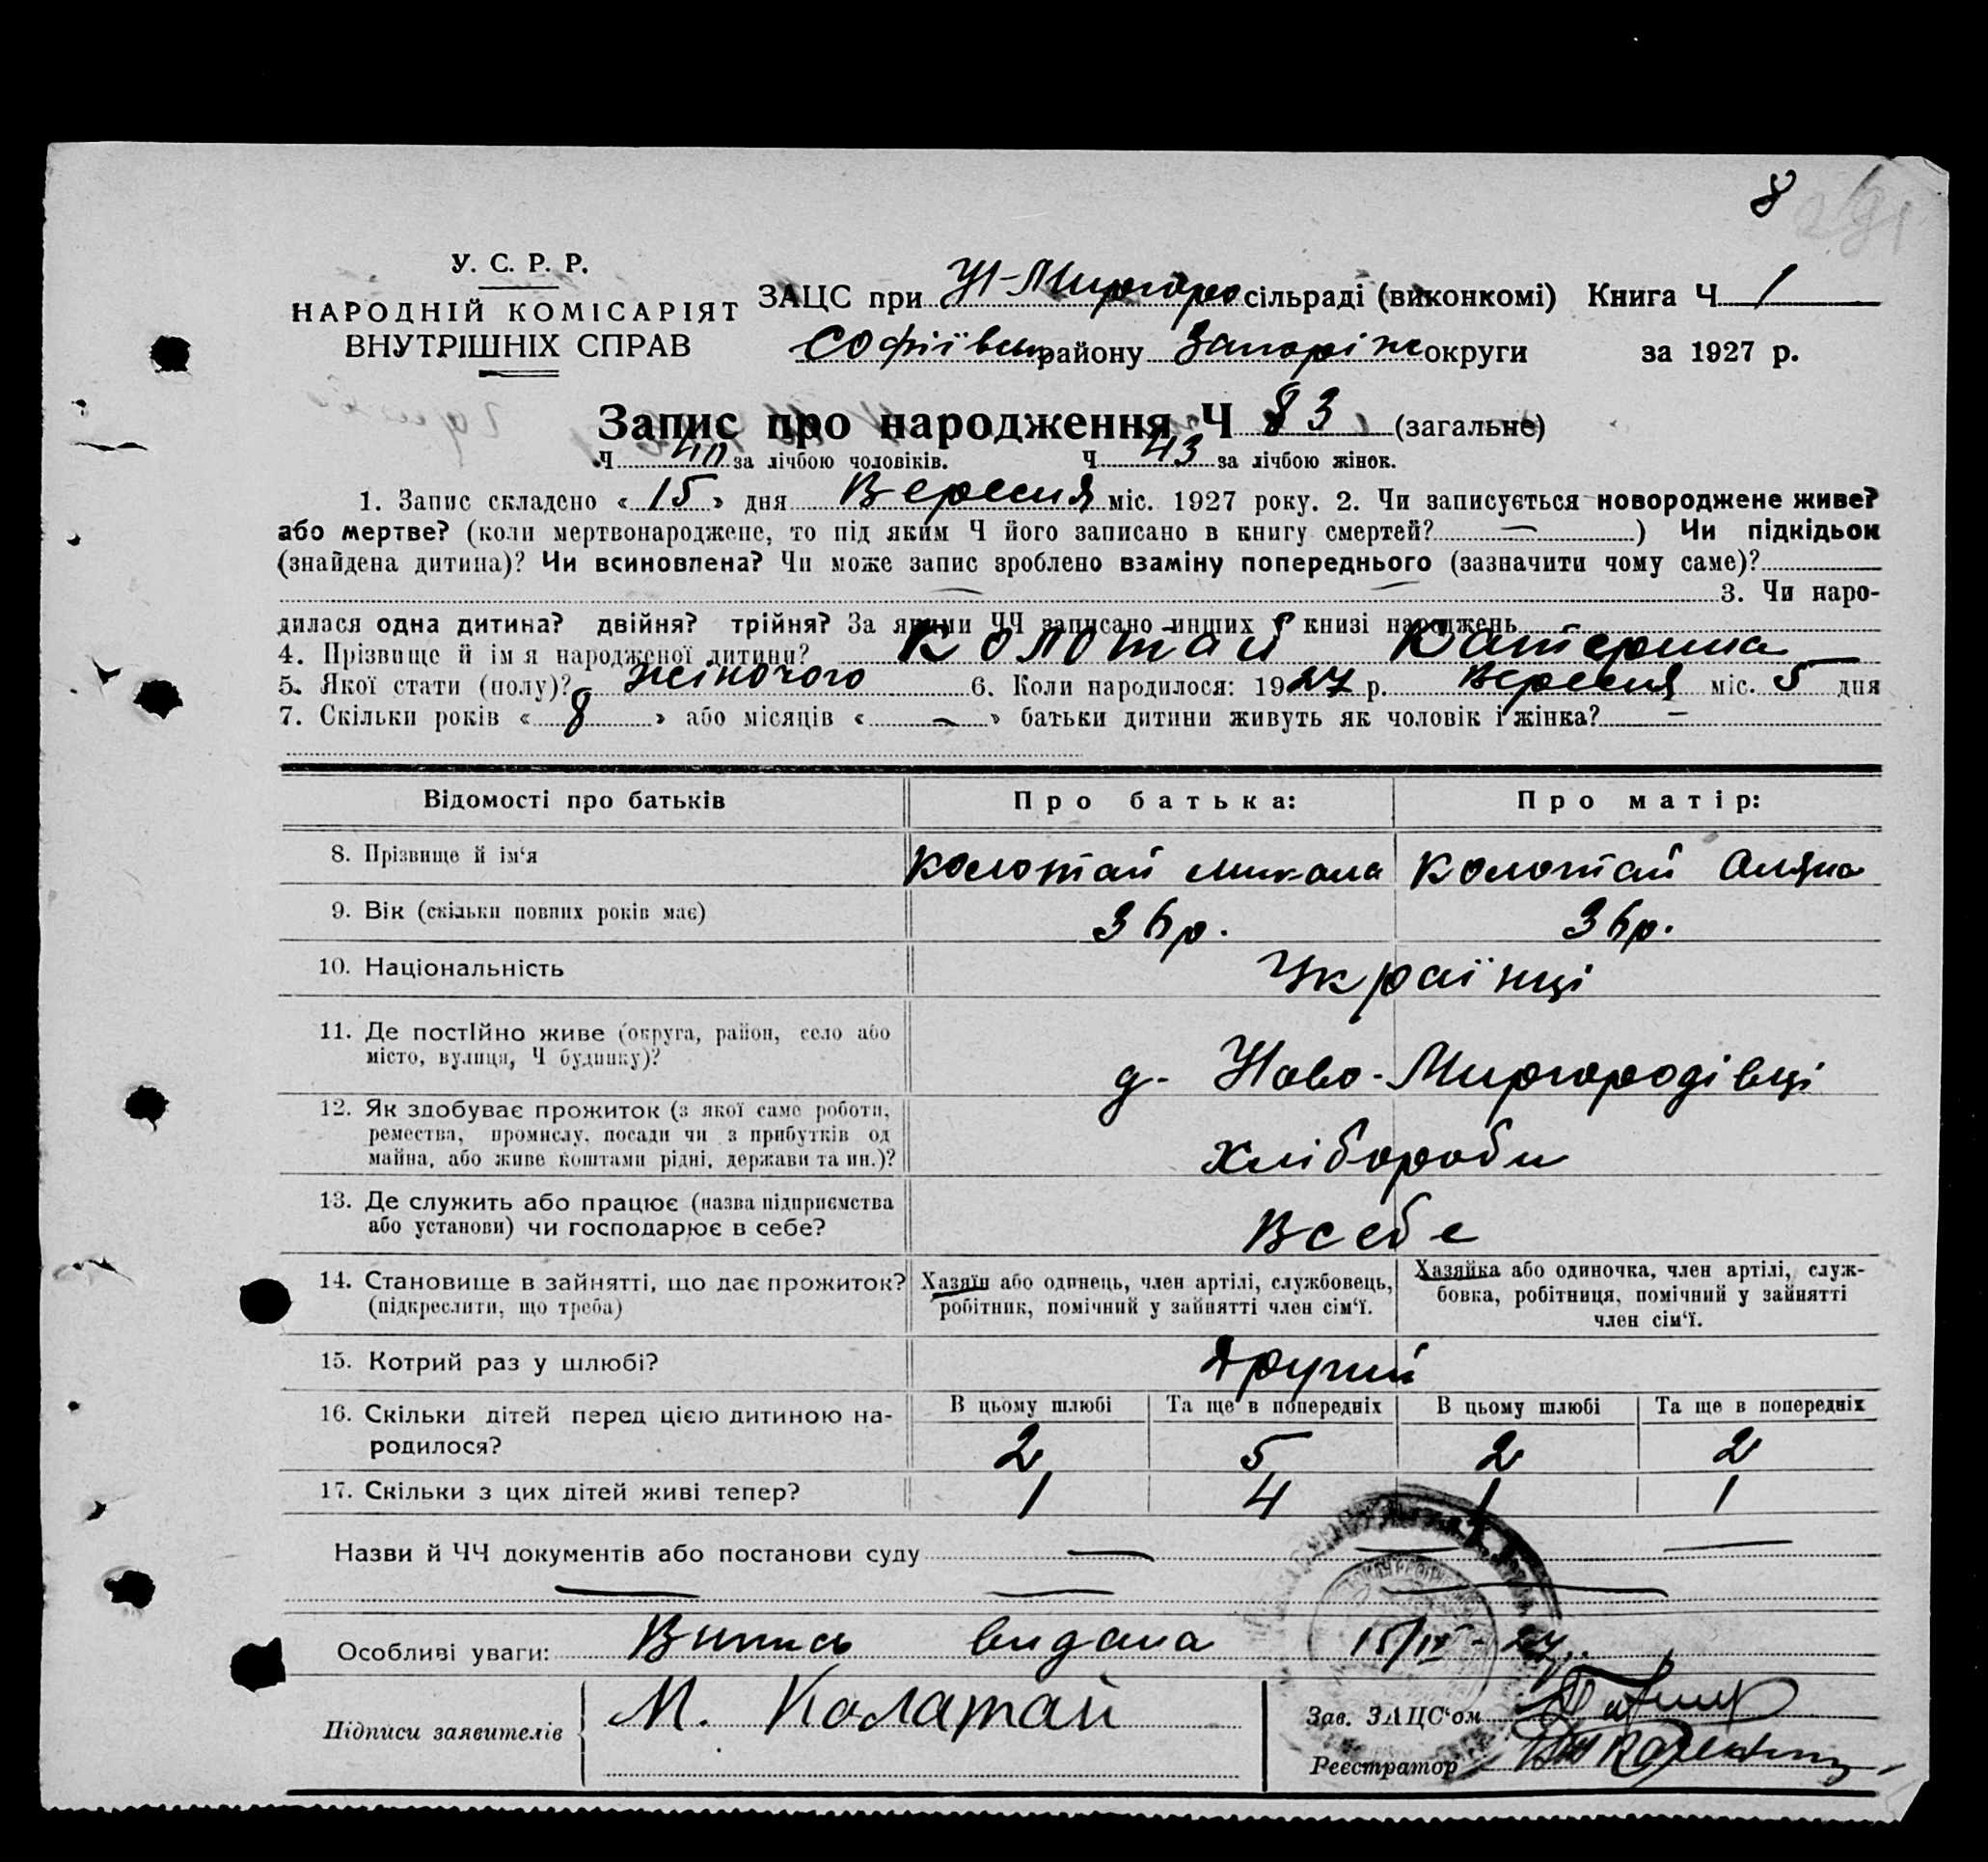 8
У. С. Р. Р.
НАРОДНІЙ КОМІСАРІЯТ
ВНУТРІШНІХ СПРАВ
ЗАЦС при Н-Миргоро сільраді (виконкомі) Книга Ч 1
Софіївськ району Запоріж округи за 1927 р.
Запис про народження Ч 83 (загальне)
Ч 40 за лічбою чоловіків. Ч 43 за лічбою жінок.
1. Запис складено « 15 » дня Вересня міс. 1927 року. 2. Чи записується новороджене живе?
або мертве? (коли мертвонароджене, то під яким Ч його записано в книгу смертей? — ) Чи підкідьок
(знайдена дитина)? Чи всиновлена? Чи може запис зроблено взаміну попереднього (зазначити чому саме)?
— — 3. Чи наро-
дилася одна дитина? двійня? трійня? За якими ЧЧ записано инших у книзі народжень
4. Прізвище й ім я народженої дитини? Колотай Катерина
5. Якої стати (полу)? жіночого 6. Коли народилося: 1927 р. Вересня міс. 5 дня
7. Скільки років « 8 » або місяців « — » батьки дитини живуть як чоловік і жінка? —
Відомості про батьків Про батька: Про матір:
8. Прізвище й ім'я Колотай Микола Колотай Оляна
9. Вік (скільки повних років має) 36р. 36р.
10. Національність Українці
11. Де постійно живе (округа, район, село або
місто, вулиця, Ч будинку)? д- Ново-Миргородівці
12. Як здобуває прожиток (з якої саме роботи,
ремества, промислу, посади чи з прибутків од
майна, або живе коштами рідні, держави та ин.)? Хлібороби
13. Де служить або працює (назва підприємства
або установи) чи господарює в себе? В себе
14. Становище в зайнятті, що дає прожиток?
(підкреслити, що треба)
Хазяїн або одинець, член артілі, службовець,
робітник, помічний у зайнятті член сім'ї.
Хазяйка або одиночка, член артілі, служ-
бовка, робітниця, помічний у зайнятті
член сім'ї.
15. Котрий раз у шлюбі? Другий
16. Скільки дітей перед цією дитиною на-
родилося?
В цьому шлюбі Та ще в попередніх В цьому шлюбі Та ще в попередніх
2 5 2 2
17. Скільки з цих дітей живі тепер? 1 4 1 1
Назви й ЧЧ документів або постанови суду — — —
— — —
Особливі уваги: Випись видана 15/IX-27
Підписи заявителів М. Колатай
Зав. ЗАЦС'ом
Реєстратор